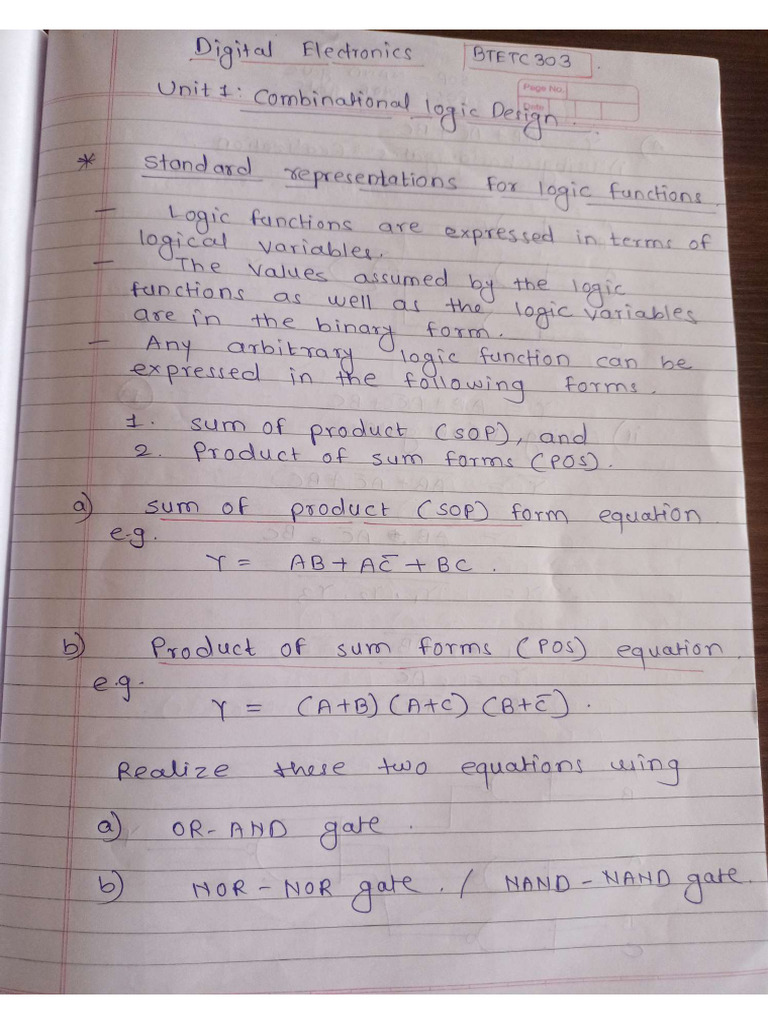 Digital Electronics BTETC303.
Page No.
Unit 1: Combinational logic Design.
Date
* Standard representations for logic functions.
- Logic functions are expressed in terms of
logical variables.
- The values assumed by the logic
functions as well as the logic variables
are in the binary form.
- Any arbitrary logic function can be
expressed in the following forms.
1. sum of product (SOP), and
2. Product of sum forms (POS).
a) sum of product (SOP) form equation
e.g.
Y = AB + AC̄ + BC.
b) Product of sum forms (POS) equation.
e.g.
Y = (A+B) (A+C) (B+C̄).
Realize these two equations using
a) OR-AND gate.
b) NOR-NOR gate. / NAND-NAND gate.